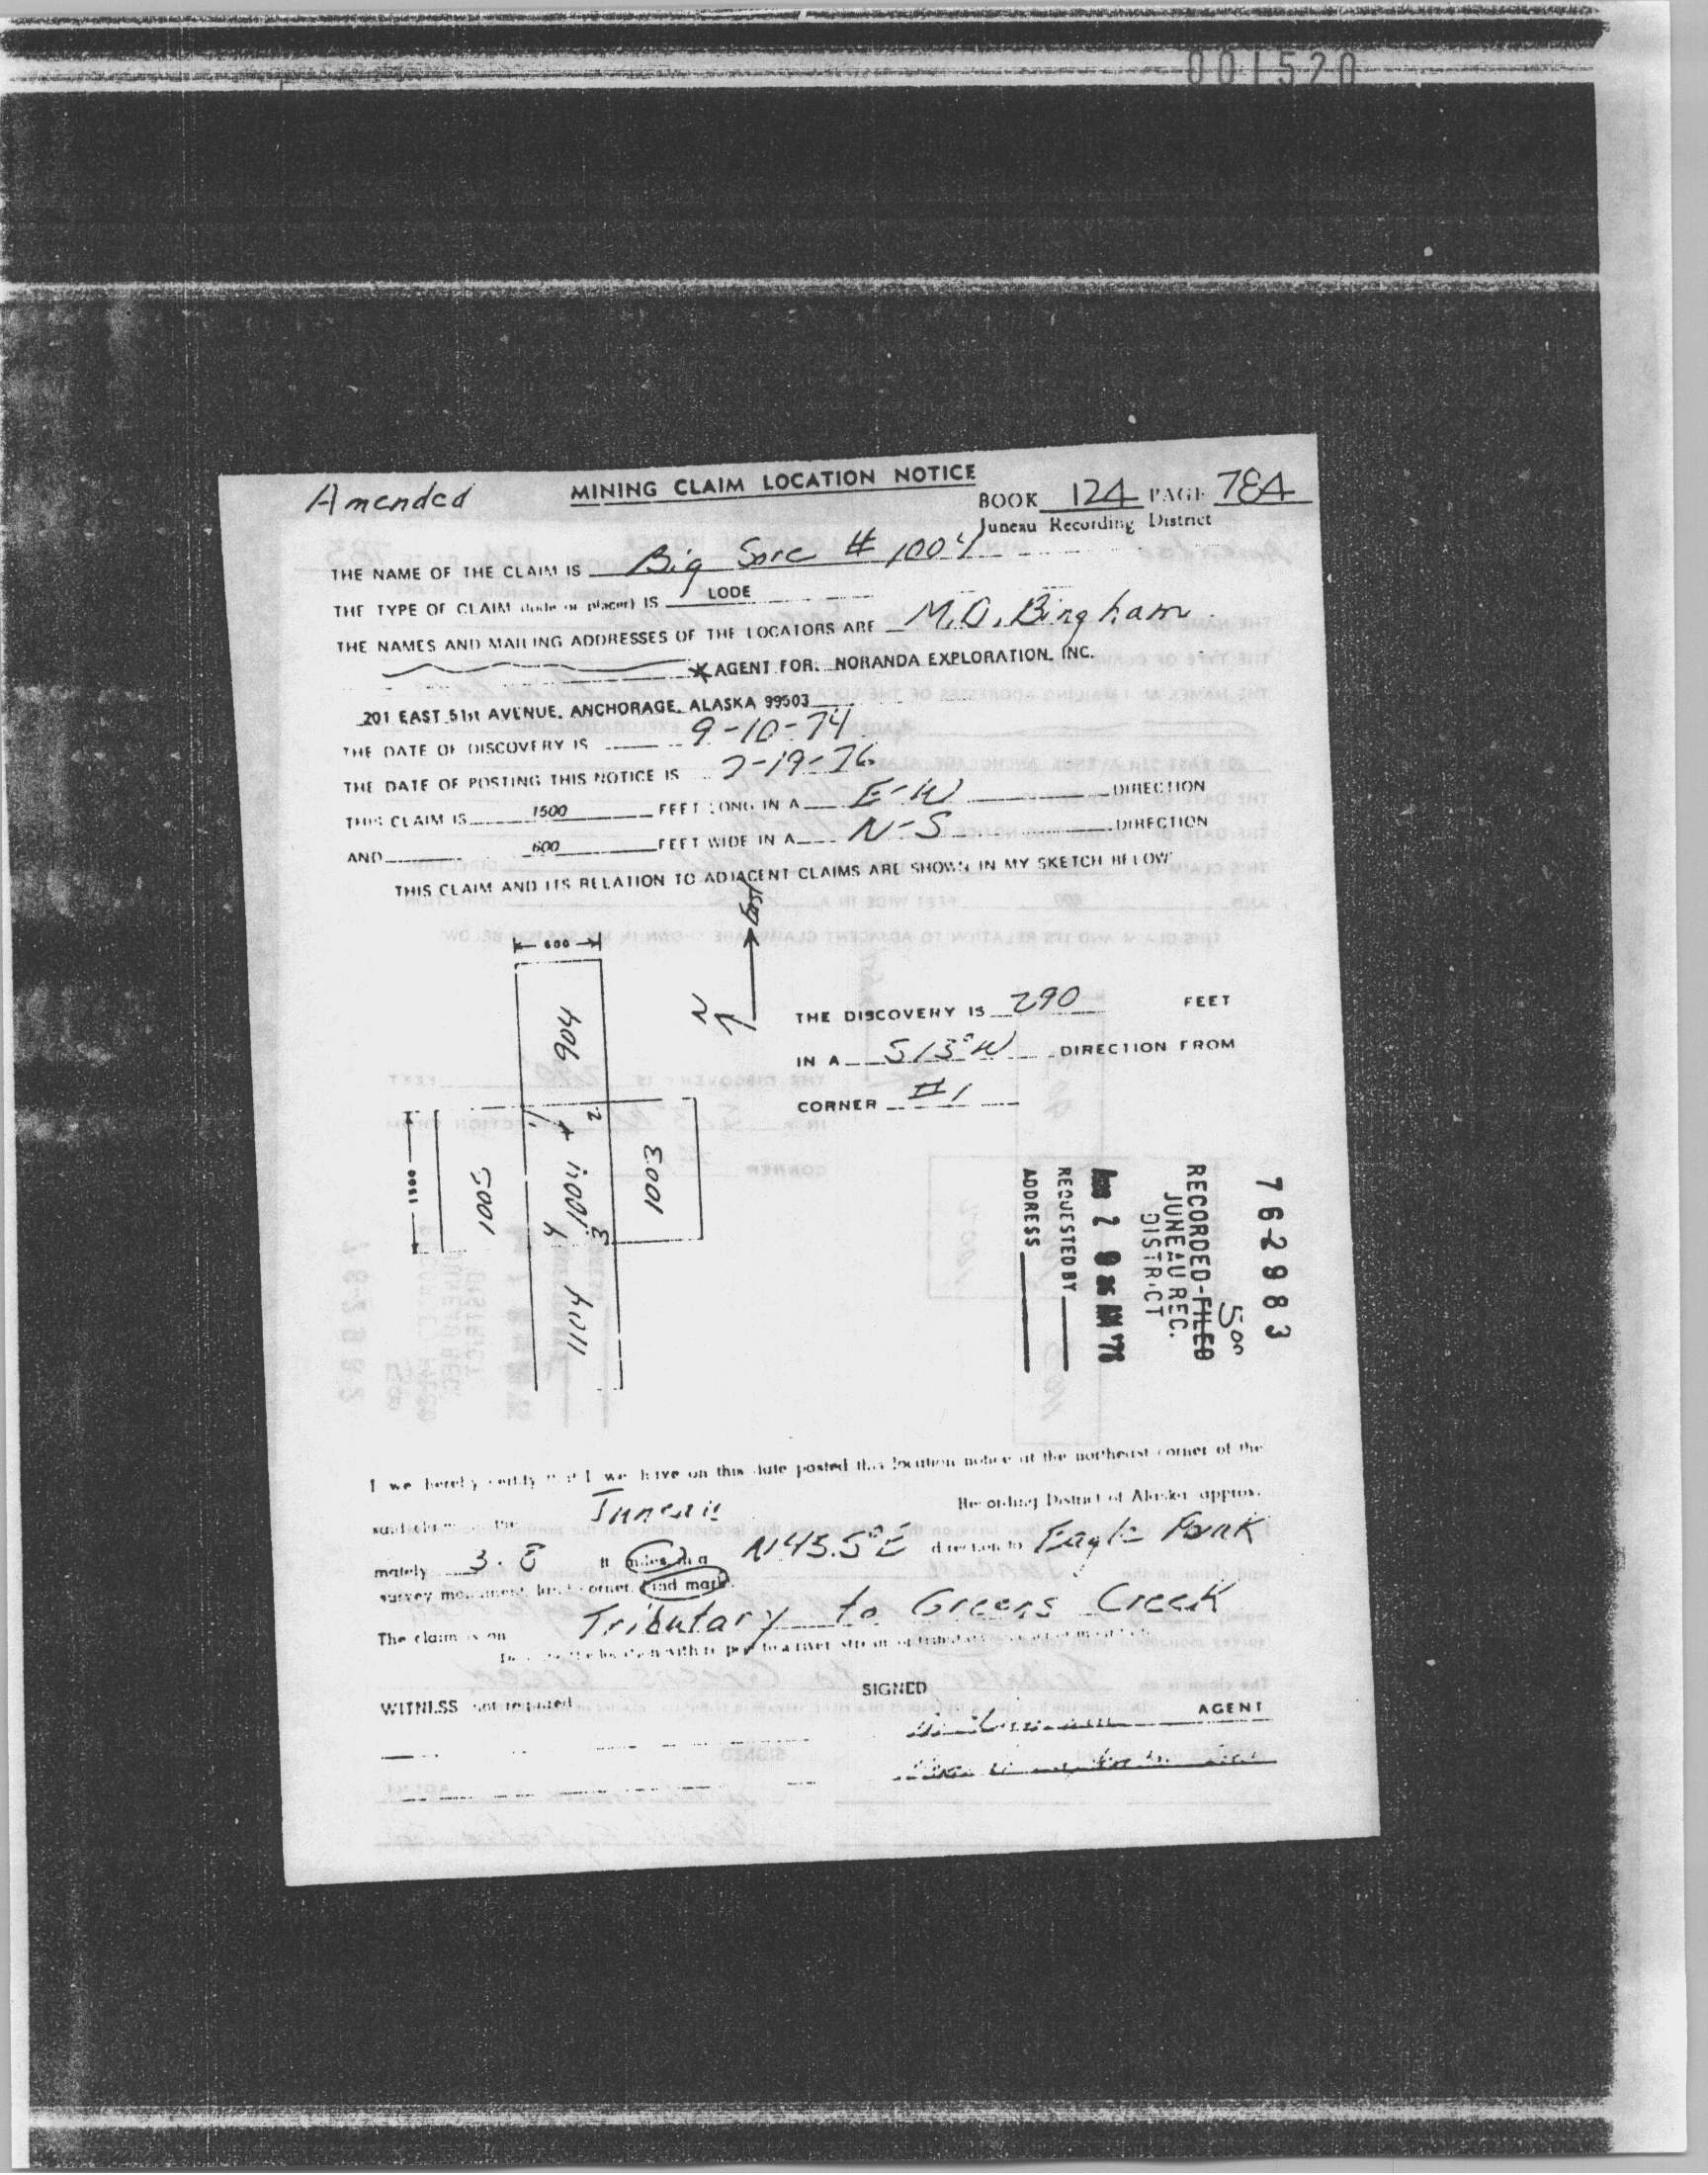 001520
Amended MINING CLAIM LOCATION NOTICE
BOOK 124 PAGE 784
Juneau Recording District
THE NAME OF THE CLAIM IS Big Sore # 1004
THE TYPE OF CLAIM (lode or placer) IS LODE
THE NAMES AND MAILING ADDRESSES OF THE LOCATORS ARE M.O. Bingham
* AGENT FOR: NORANDA EXPLORATION, INC.
201 EAST 51st AVENUE, ANCHORAGE, ALASKA 99503
THE DATE OF DISCOVERY IS 9-10-74
THE DATE OF POSTING THIS NOTICE IS 7-19-76
THIS CLAIM IS 1500 FEET LONG IN A E-W DIRECTION
AND 600 FEET WIDE IN A N-S DIRECTION
THIS CLAIM AND ITS RELATION TO ADJACENT CLAIMS ARE SHOWN IN MY SKETCH BELOW
East
N
600
904
1500
1005
1
2
1004
4
3
1003
1104
THE DISCOVERY IS 290 FEET
IN A S13°W DIRECTION FROM
CORNER #1
76-2983
5.00
RECORDED-FILED
JUNEAU REC.
DISTRICT
REQUESTED BY
ADDRESS
I we hereby certify that I we have on this date posted this location notice at the northeast corner of the
said claim in the Juneau Recording District of Alaska approx.
mately 3.8 ft miles in a N45.5°E direction to Eagle Peak
survey monument, land corner, land mark.
The claim is on Tributary to Greens Creek
WITNESS not required
SIGNED
AGENT